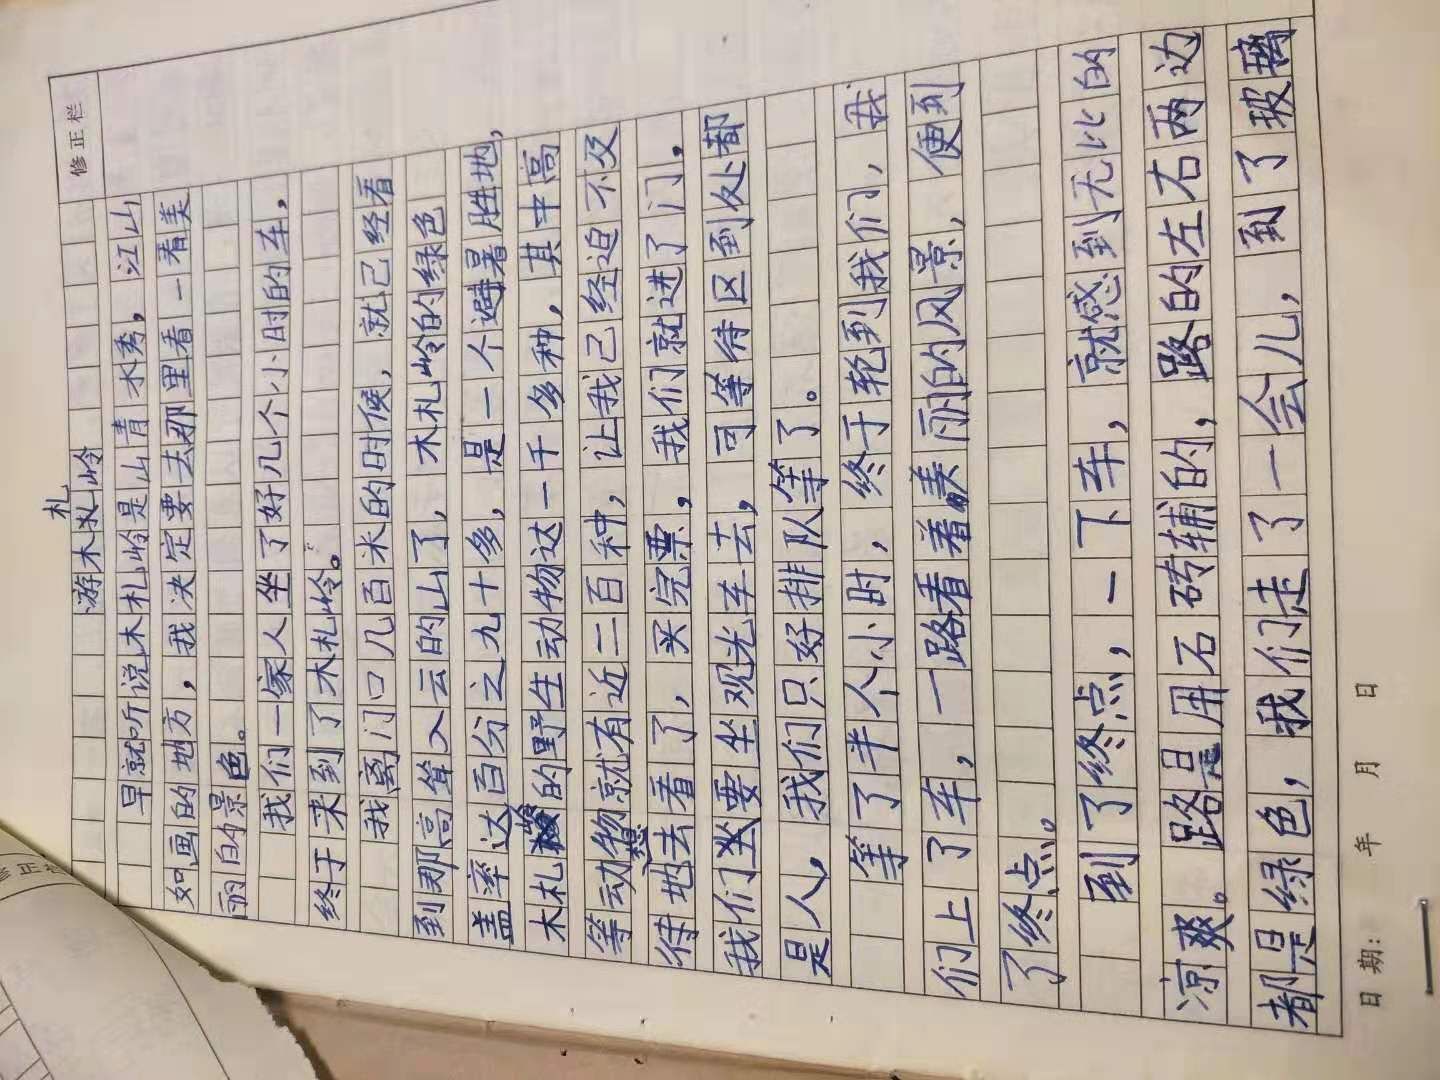 修正栏
札
游木札岭
早就听说木札岭是山青水秀，江山
如画的地方，我决定要去那里看一看美
丽的景色。
我们一家人坐了好几个小时的车，
终于来到了木札岭。
我离门口几百米的时候，就已经看
到那高耸入云的山了，木札岭的绿色
盖率达百分之九十多，是一个避暑胜地，
木札岭的野生动物达一千多种，其中高
等动物就有近二百种，让我已经迫不及
待地想去看了，买完票，我们就进了门，
我们要坐观光车去，可等待区到处都
是人，我们只好排队等了。
等了半个小时，终于轮到我们，我
们上了车，一路看着美丽的风景，便到
了终点。
到了终点，一下车，就感到无比的
凉爽。路是用石砖辅的，路的左右两边
都是绿色，我们走了一会儿，到了玻璃
日期： 年 月 日
修正栏